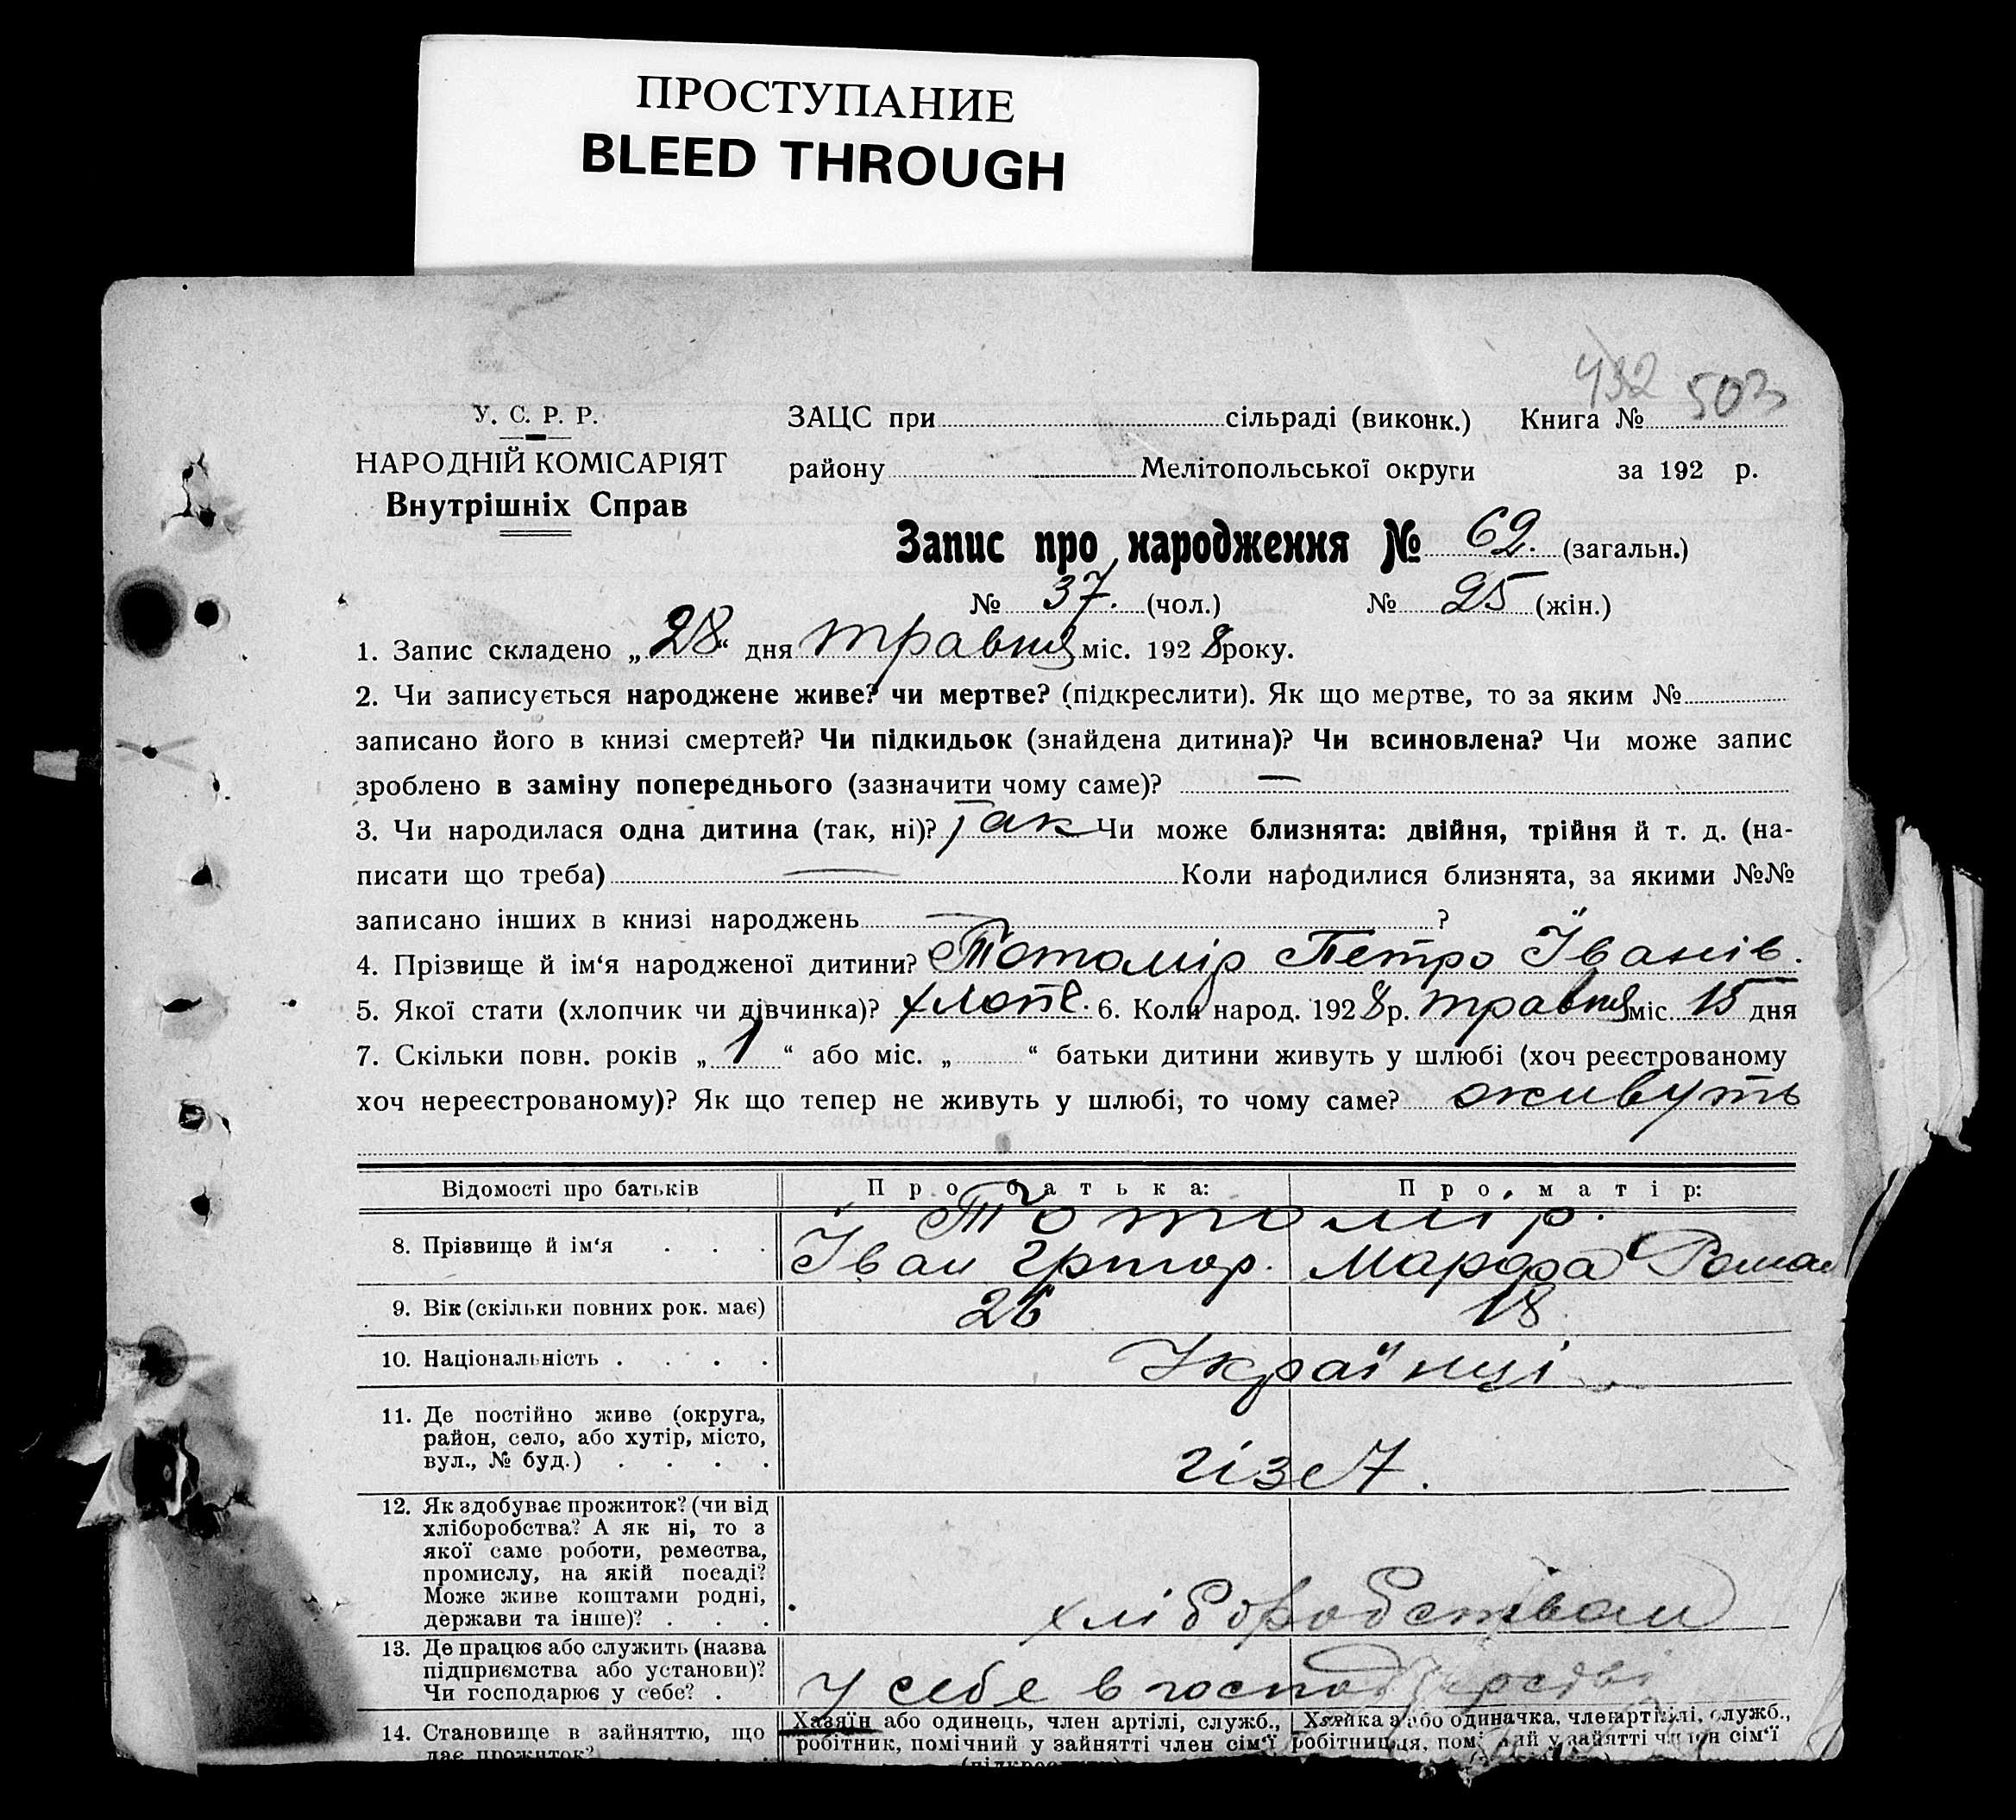 ПРОСТУПАНИЕ
BLEED THROUGH
432 503
У. С. Р. Р.
НАРОДНІЙ КОМІСАРІЯТ
Внутрішніх Справ
ЗАЦС при сільраді (виконк.) Книга №
району Мелітопольської округи за 192 р.
Запис про народження № 62. (загальн.)
№ 37. (чол.) № 25 (жін.)
1. Запис складено „28“ дня травня міс. 1928 року.
2. Чи записується народжене живе? чи мертве? (підкреслити). Як що мертве, то за яким №
записано його в книзі смертей? Чи підкидьок (знайдена дитина)? Чи всиновлена? Чи може запис
зроблено в заміну попереднього (зазначити чому саме)? —
3. Чи народилася одна дитина (так, ні)? Так Чи може близнята: двійня, трійня й т. д. (на-
писати що треба) — Коли народилися близнята, за якими №№
записано інших в книзі народжень — ?
4. Прізвище й ім‘я народженої дитини? Тотомір Петро Іванів.
5. Якої стати (хлопчик чи дівчинка)? хлопч. 6. Коли народ. 1928 р. травня міс. 15 дня
7. Скільки повн. років „1“ або міс. „ “ батьки дитини живуть у шлюбі (хоч реєстрованому
хоч нереєстрованому)? Як що тепер не живуть у шлюбі, то чому саме? живуть
Відомості про батьків Про батька: Про матір:
Тотомір.
8. Прізвище й ім‘я . . . Іван Григор. Марфа Роман
9. Вік (скільки повних рок. має) 26 18
10. Національність . . . . Українці
11. Де постійно живе (округа,
район, село, або хутір, місто,
вул., № буд.) . . . .
12. Як здобуває прожиток? (чи від
хліборобства? А як ні, то з
якої саме роботи, ремества,
промислу, на якій посаді?
Може живе коштами родні,
держави та інше)? . . . хліборобством
13. Де працює або служить (назва
підприємства або установи)?
Чи господарює у себе? . У себе в господарстві
14. Становище в зайняттю, що
дає прожиток?
Хазяїн або одинець, член артілі, служб.,
робітник, помічний у зайнятті член сім‘ї
Хазяйка або одиначка, член артілі, служб.,
робітниця, у зайнятті член сім‘ї